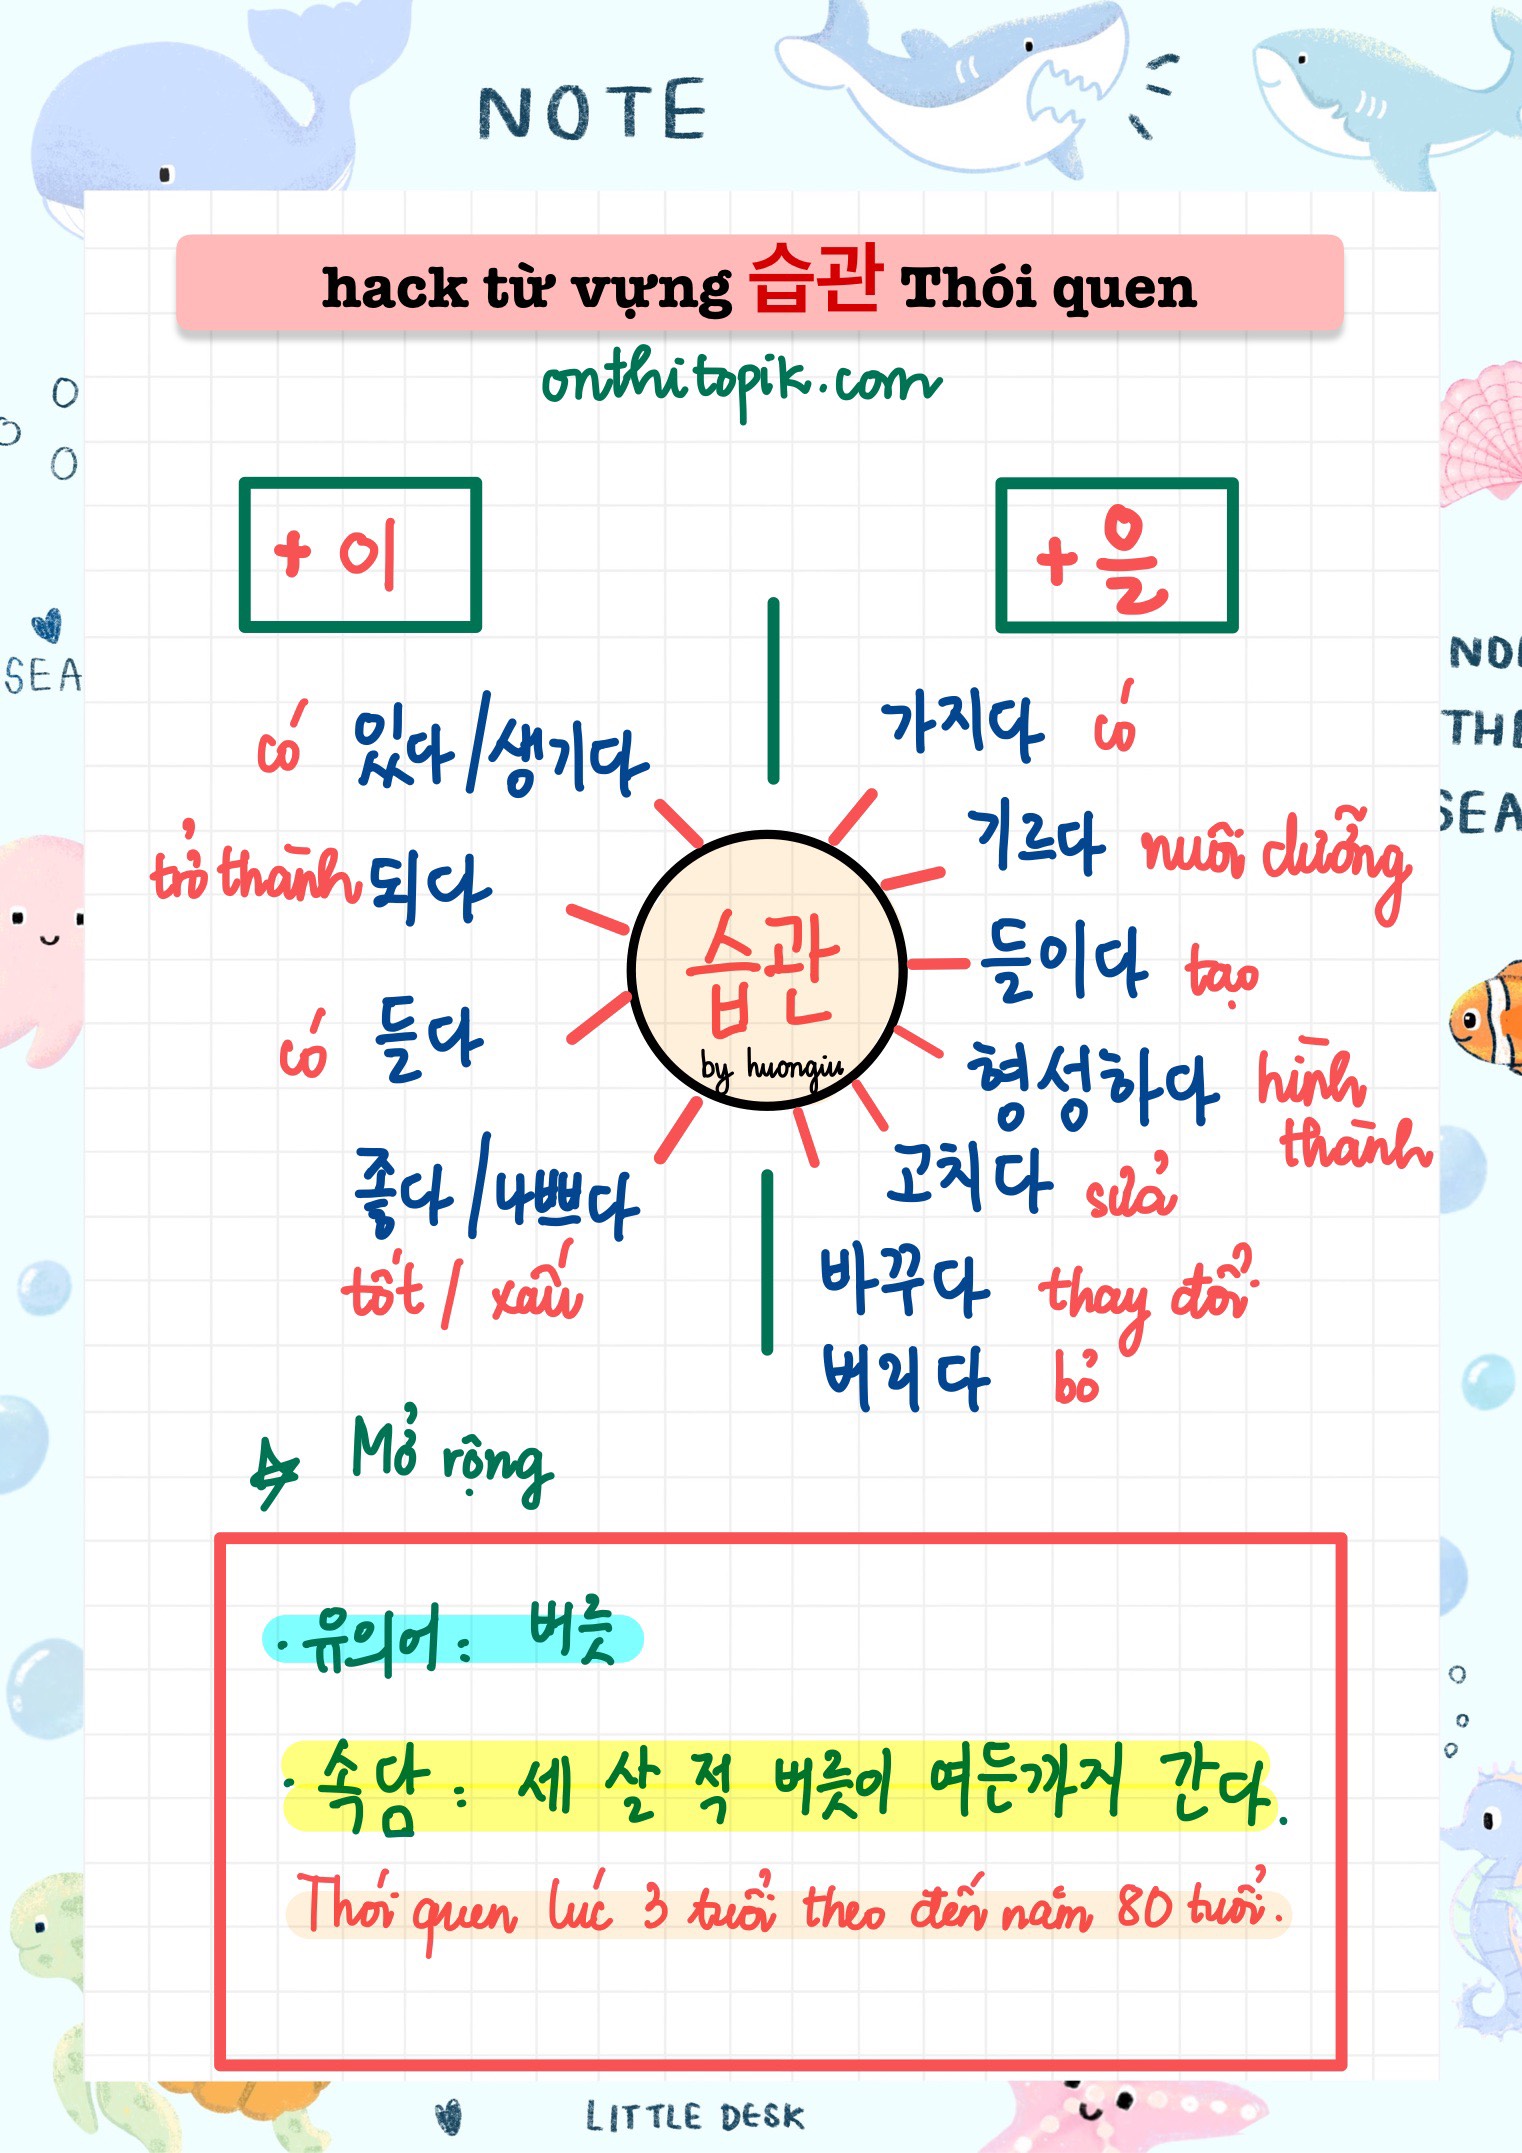 NOTE
hack từ vựng 습관 Thói quen
onthitopik.com
+ 이
có 있다/생기다
trở thành 되다
có 들다
좋다/나쁘다
tốt / xấu
습관
by huongiu
+ 을
가지다 có
기르다 nuôi dưỡng
들이다 tạo
형성하다 hình
thành
고치다 sửa
바꾸다 thay đổi
버리다 bỏ
Mở rộng
· 유의어: 버릇
· 속담: 세 살 적 버릇이 여든까지 간다.
Thói quen lúc 3 tuổi theo đến năm 80 tuổi.
SEA
THE
SEA
LITTLE DESK